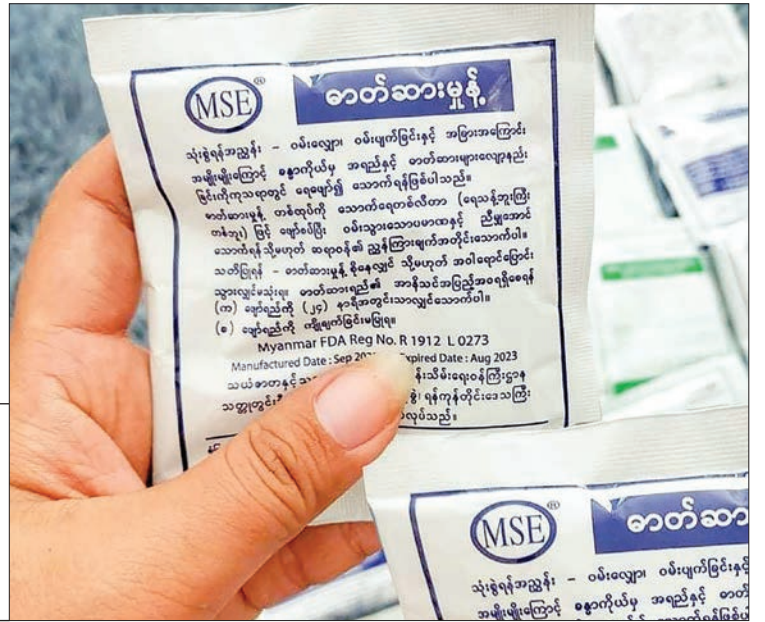 MSE®
ဓာတ်ဆားမှုန့်
သုံးစွဲရန်အညွှန်း – ဝမ်းလျှော၊ ဝမ်းပျက်ခြင်းနှင့် အခြားအကြောင်း
အမျိုးမျိုးကြောင့် ခန္ဓာကိုယ်မှ အရည်နှင့် ဓာတ်ဆားများလျော့နည်း
ခြင်းကိုကုသရာတွင် ရေဖျော်၍ သောက်ရန်ဖြစ်ပါသည်။
ဓာတ်ဆားမှုန့် တစ်ထုပ်ကို သောက်ရေတစ်လီတာ (ရေသန့်ဘူးကြီး
တစ်ဘူး) ဖြင့် ဖျော်စပ်ပြီး ဝမ်းသွားသောပမာဏနှင့် ညီမျှအောင်
သောက်ရန်သို့မဟုတ် ဆရာဝန်၏ ညွှန်ကြားချက်အတိုင်းသောက်ပါ။
သတိပြုရန် – ဓာတ်ဆားမှုန့် စိုနေလျှင် သို့မဟုတ် အဝါရောင်ပြောင်း
သွားလျှင်မသုံးရ။ ဓာတ်ဆားရည်၏ အာနိသင်အပြည့်အဝရရှိစေရန်
(က) ဖျော်ရည်ကို (၂၄) နာရီအတွင်းသာလျှင်သောက်ပါ။
(ခ) ဖျော်ရည်ကို ကျိုချက်ခြင်းမပြုရ။
Myanmar FDA Reg No. R 1912 L 0273
Manufactured Date : Sep Expired Date : Aug 2023
သယံဇာတနှင့် န်းသိမ်းရေးဝန်ကြီးဌာန
သတ္တုတွင်း ရန်ကုန်တိုင်းဒေသကြီး
လုပ်သည်။
MSE®
ဓာတ်ဆာ
သုံးစွဲရန်အညွှန်း – ဝမ်းလျှော၊ ဝမ်းပျက်ခြင်းနှင့်
အမျိုးမျိုးကြောင့် ခန္ဓာကိုယ်မှ အရည်နှင့် ဓာတ်